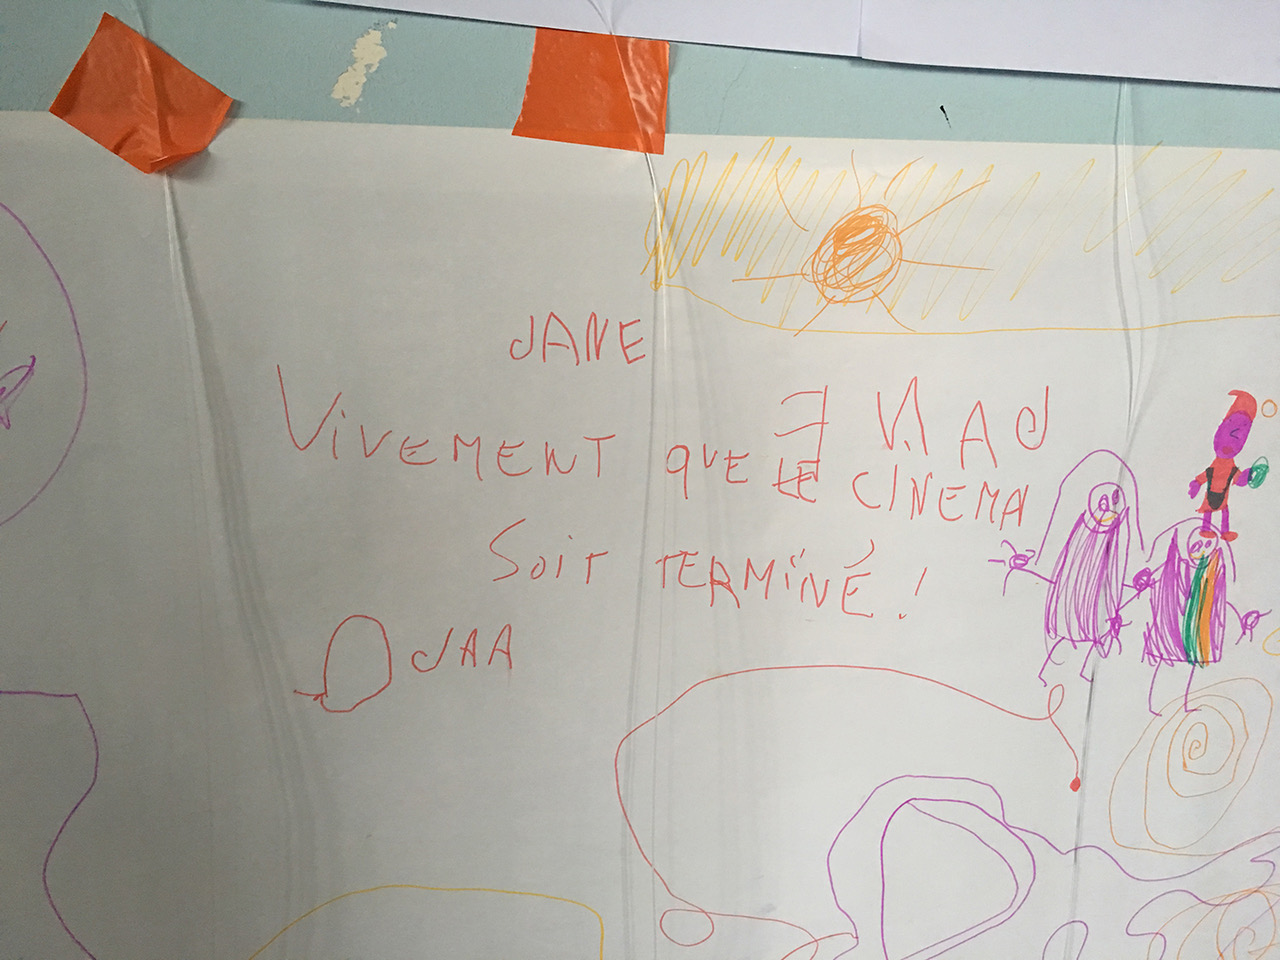 JANE
E N A J
VIVEMENT QUE LE CINEMA
SOIT TERMINÉ !
JAA